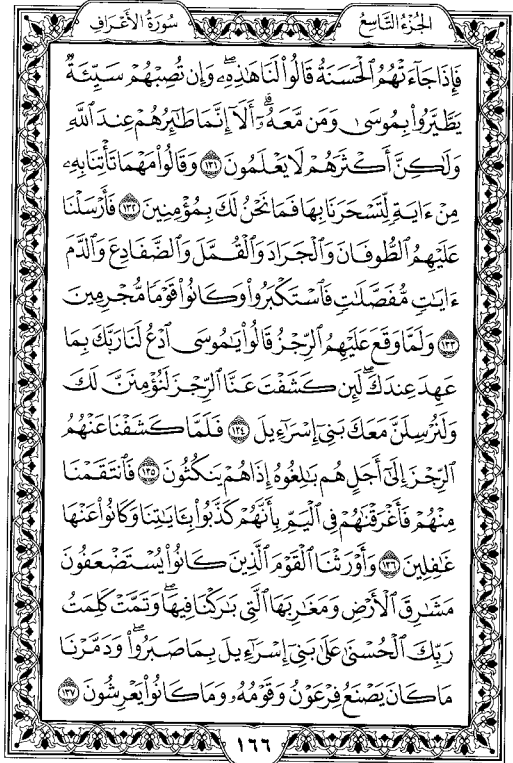 الجزء التاسع
سورة الأعراف
فَإِذَا جَآءَتْهُمُ ٱلْحَسَنَةُ قَالُوا۟ لَنَا هَٰذِهِۦ ۖ وَإِن تُصِبْهُمْ سَيِّئَةٌ
يَطَّيَّرُوا۟ بِمُوسَىٰ وَمَن مَّعَهُۥٓ ۗ أَلَآ إِنَّمَا طَٰٓئِرُهُمْ عِندَ ٱللَّهِ
وَلَٰكِنَّ أَكْثَرَهُمْ لَا يَعْلَمُونَ ١٣١ وَقَالُوا۟ مَهْمَا تَأْتِنَا بِهِۦ
مِنْ ءَايَةٍ لِّتَسْحَرَنَا بِهَا فَمَا نَحْنُ لَكَ بِمُؤْمِنِينَ ١٣٢ فَأَرْسَلْنَا
عَلَيْهِمُ ٱلطُّوفَانَ وَٱلْجَرَادَ وَٱلْقُمَّلَ وَٱلضَّفَادِعَ وَٱلدَّمَ
ءَايَٰتٍ مُّفَصَّلَٰتٍ فَٱسْتَكْبَرُوا۟ وَكَانُوا۟ قَوْمًا مُّجْرِمِينَ
١٣٣ وَلَمَّا وَقَعَ عَلَيْهِمُ ٱلرِّجْزُ قَالُوا۟ يَٰمُوسَى ٱدْعُ لَنَا رَبَّكَ بِمَا
عَهِدَ عِندَكَ ۖ لَئِن كَشَفْتَ عَنَّا ٱلرِّجْزَ لَنُؤْمِنَنَّ لَكَ
وَلَنُرْسِلَنَّ مَعَكَ بَنِىٓ إِسْرَٰٓءِيلَ ١٣٤ فَلَمَّا كَشَفْنَا عَنْهُمُ
ٱلرِّجْزَ إِلَىٰٓ أَجَلٍ هُم بَٰلِغُوهُ إِذَا هُمْ يَنكُثُونَ ١٣٥ فَٱنتَقَمْنَا
مِنْهُمْ فَأَغْرَقْنَٰهُمْ فِى ٱلْيَمِّ بِأَنَّهُمْ كَذَّبُوا۟ بِـَٔايَٰتِنَا وَكَانُوا۟ عَنْهَا
غَٰفِلِينَ ١٣٦ وَأَوْرَثْنَا ٱلْقَوْمَ ٱلَّذِينَ كَانُوا۟ يُسْتَضْعَفُونَ
مَشَٰرِقَ ٱلْأَرْضِ وَمَغَٰرِبَهَا ٱلَّتِى بَٰرَكْنَا فِيهَا ۖ وَتَمَّتْ كَلِمَتُ
رَبِّكَ ٱلْحُسْنَىٰ عَلَىٰ بَنِىٓ إِسْرَٰٓءِيلَ بِمَا صَبَرُوا۟ ۖ وَدَمَّرْنَا
مَا كَانَ يَصْنَعُ فِرْعَوْنُ وَقَوْمُهُۥ وَمَا كَانُوا۟ يَعْرِشُونَ ١٣٧
١٦٦